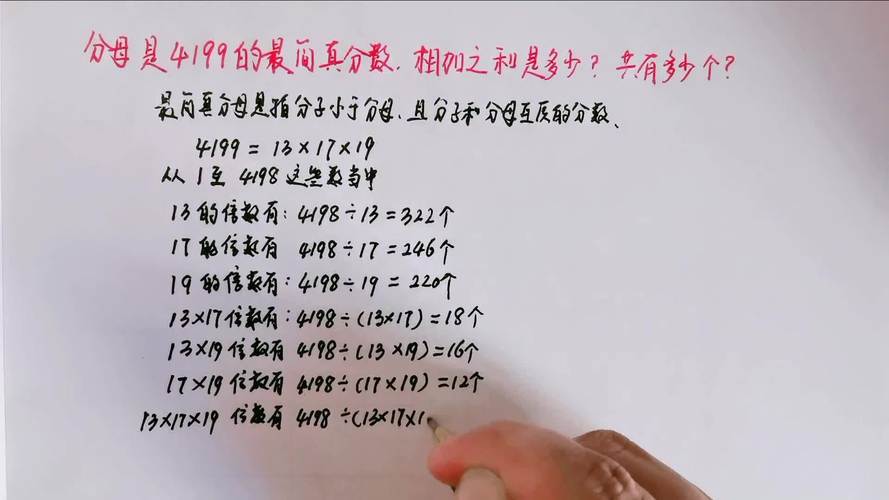 分母是4199的最简真分数.相加之和是多少?共有多少个?
最简真分母是指分子小于分母、且分子和分母互质的分数、
4199=13×17×19
从1至4198这些数当中
13的倍数有:4198÷13=322个
17的倍数有 4198÷17=246个
19的倍数有:4198÷19=220个
13×17倍数有:4198÷(13×17)=18个
13×19倍数有 4198÷(13×19)=16个
17×19倍数有 4198÷(17×19)=12个
13×17×19 倍数有 4198÷(13×17×1